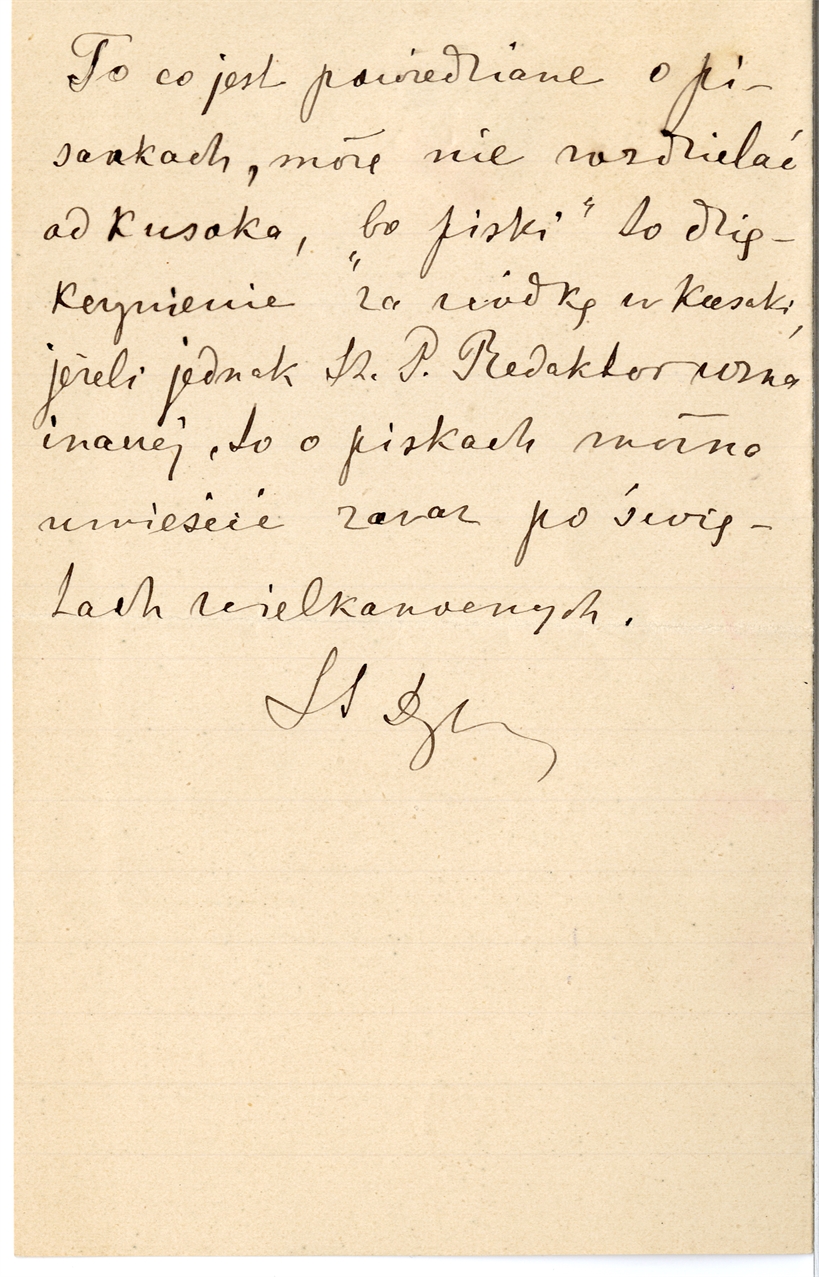 To co jest powiedziane o pi-
sankach, może nie rozdzielać
od Kusaka, bo „piski“ to dzię-
kczynienie za wódkę w Kusaki,
jeżeli jednak Sz. P. Redaktor uzna
inaczej, to o piskach można
umieścić zaraz po świę-
tach wielkanocnych.